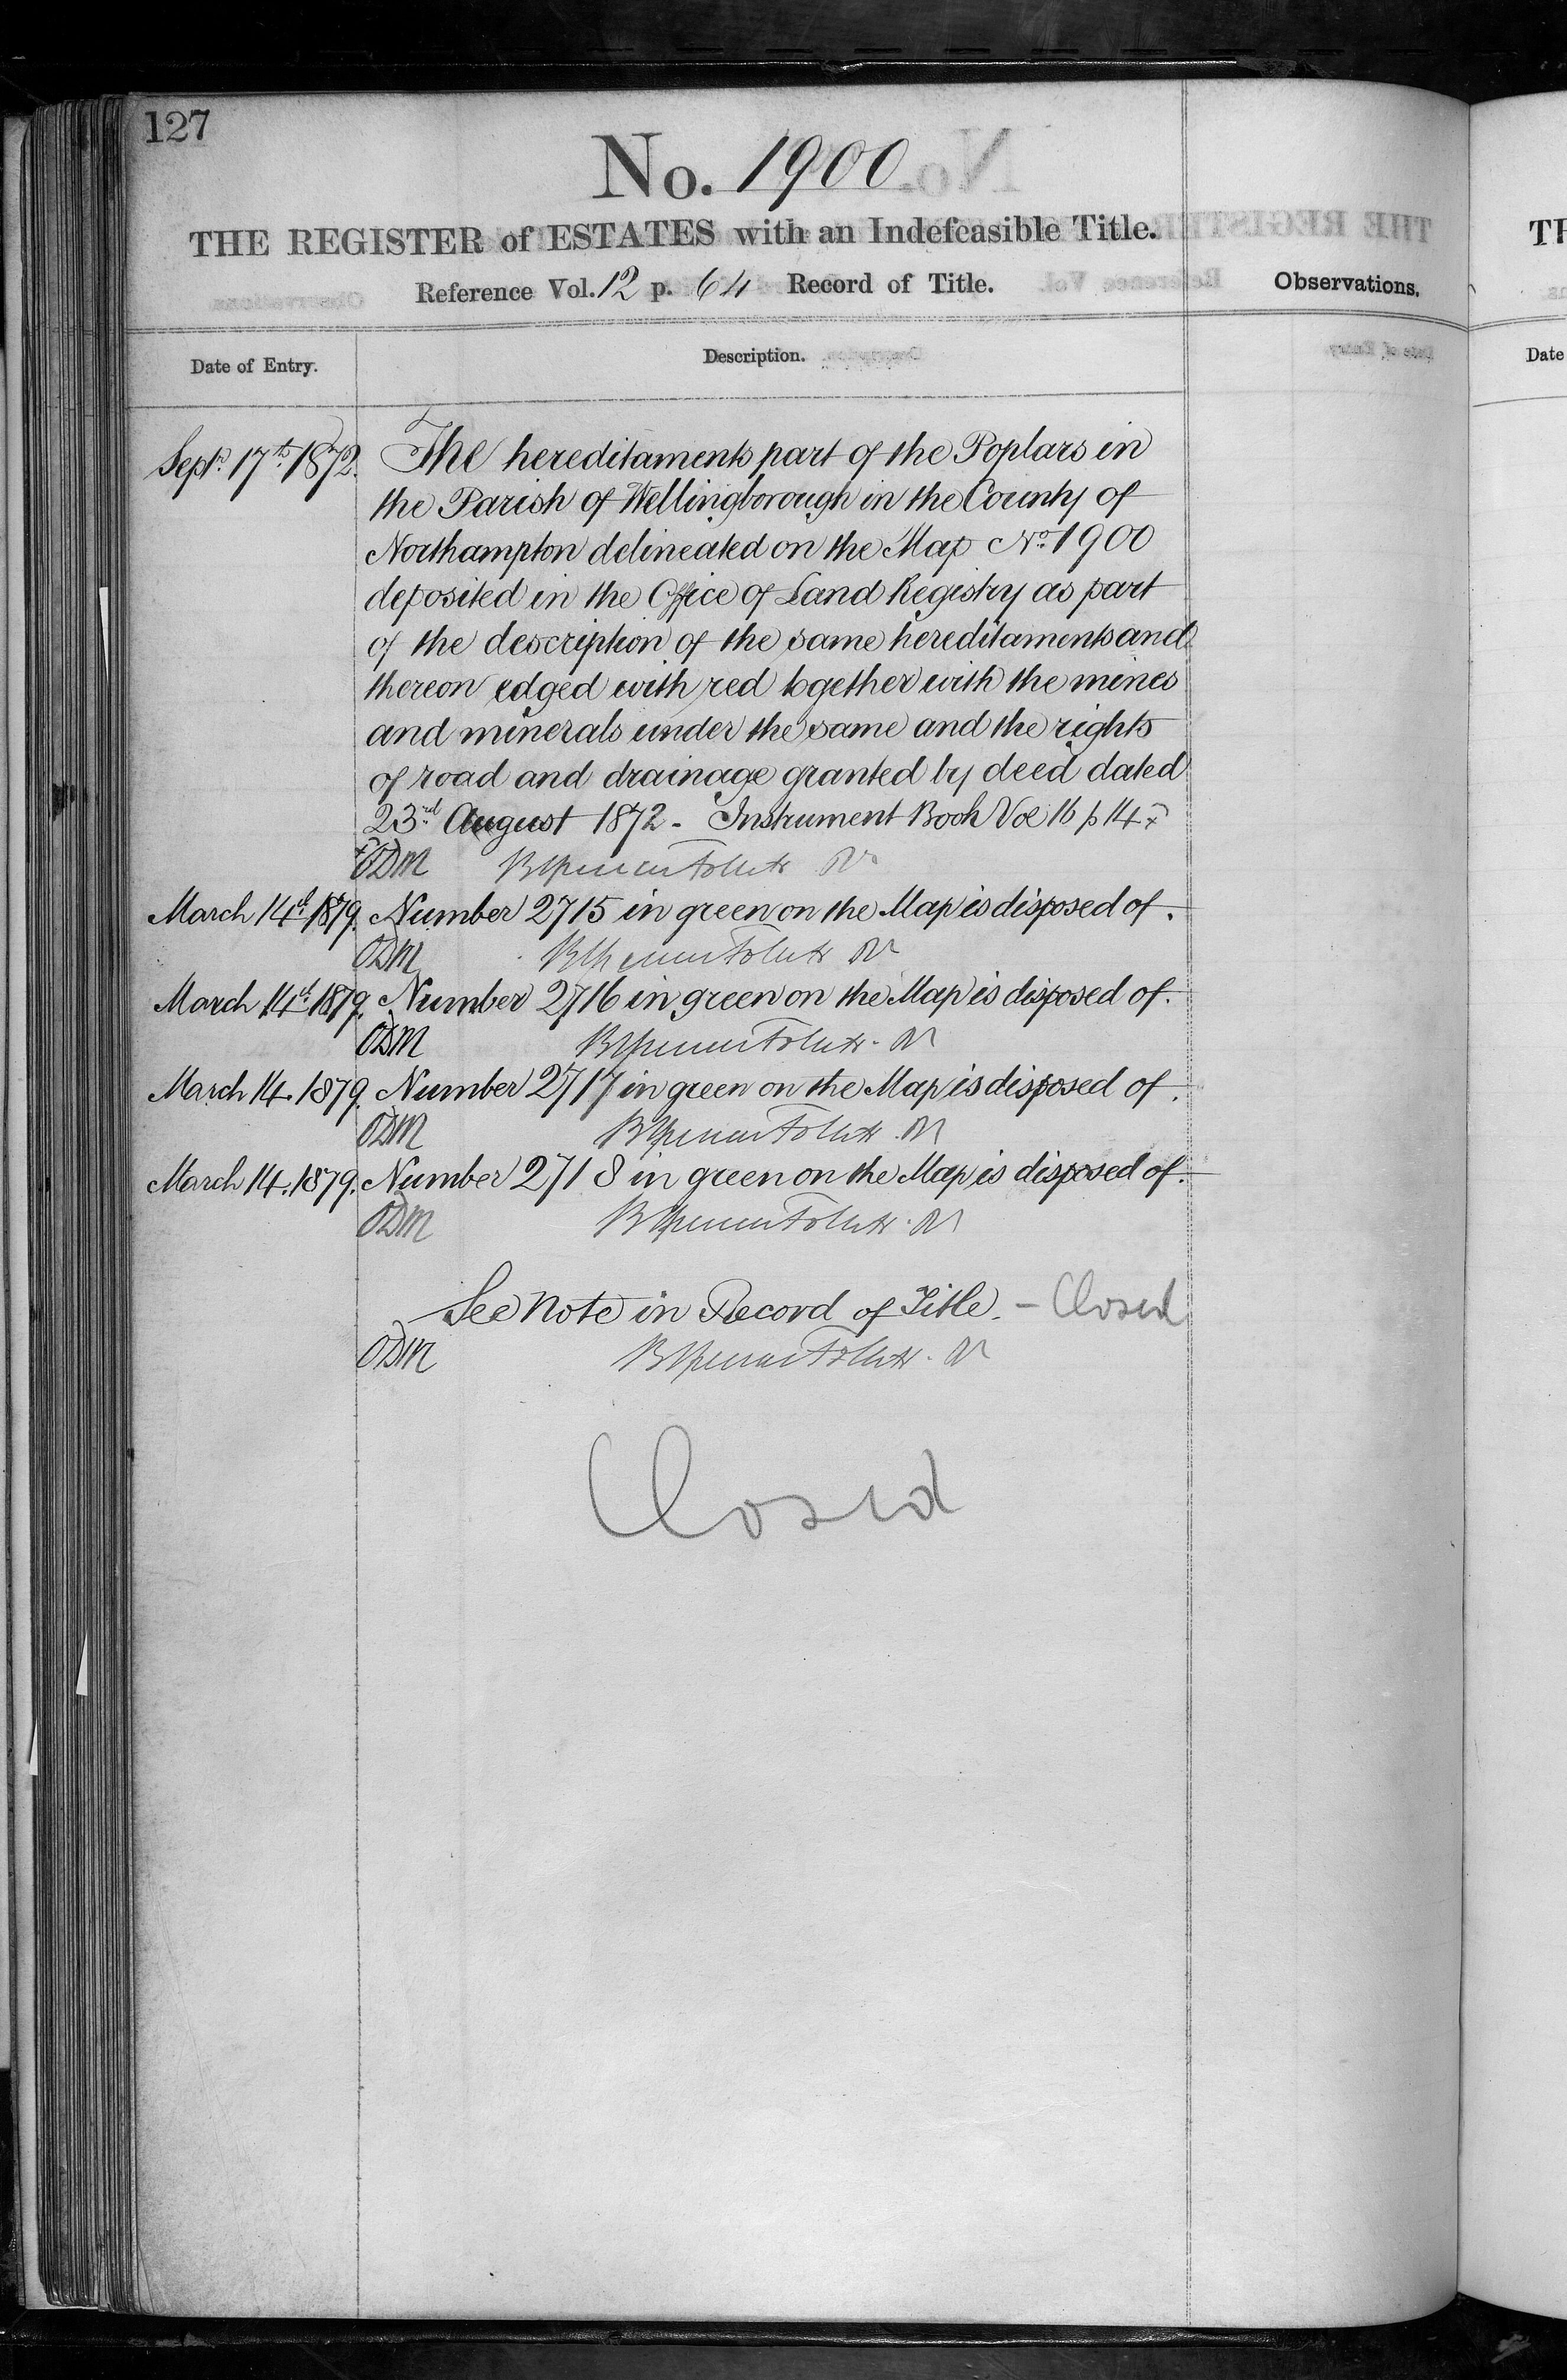 127
No. 1900
THE REGISTER of ESTATES with an Indefeasible Title.
Reference Vol. 12 p. 64 Record of Title.
Observations.
Date of Entry.
Description.
Septr. 17th 1872. The hereditaments part of the Poplars in
the Parish of Wellingborough in the County of
Northampton delineated on the Map No. 1900
deposited in the Office of Land Registry as part
of the description of the same hereditaments and
thereon edged with red together with the mines
and minerals under the same and the rights
of road and drainage granted by deed dated
23rd August 1872 - Instrument Book Vol 16 p 14
ODM
March 14th 1879. Number 2715 in green on the Map is disposed of.
ODM
March 14th 1879. Number 2716 in green on the Map is disposed of.
ODM
March 14. 1879. Number 2717 in green on the Map is disposed of.
ODM
March 14. 1879. Number 2718 in green on the Map is disposed of.
ODM
See note in Record of Title. - Closed
ODM
Closed
TH
Date